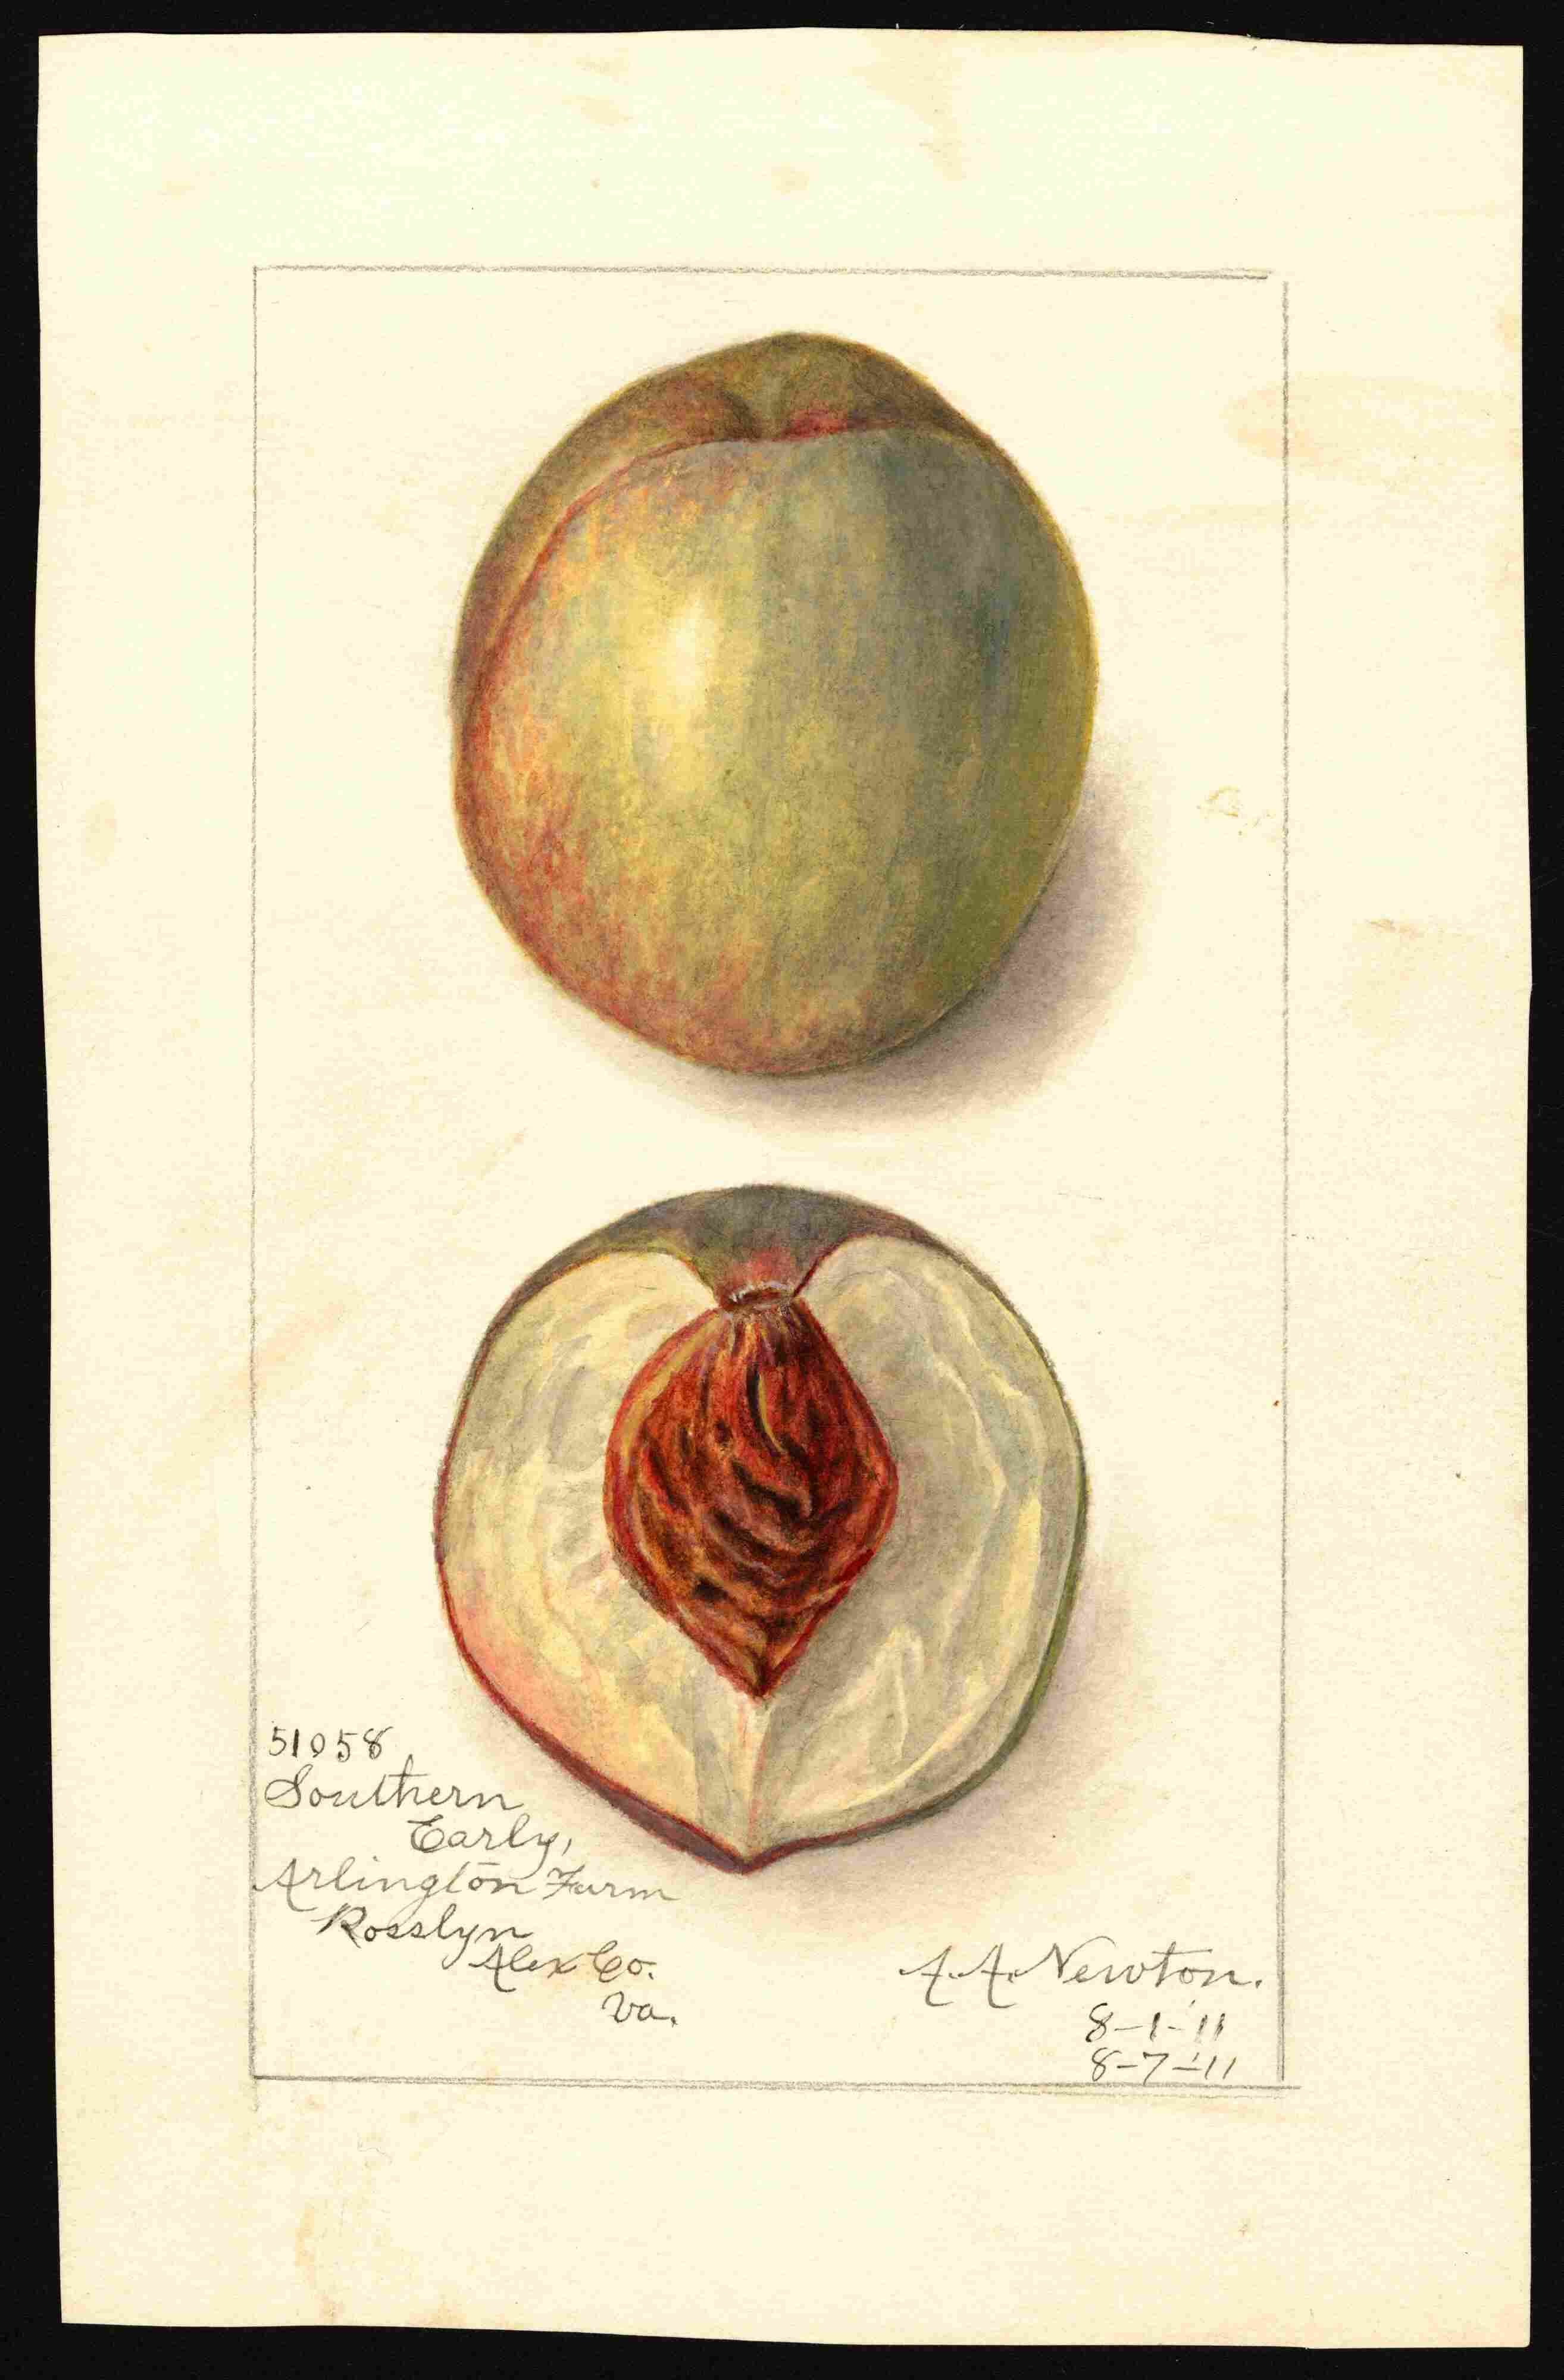 51058
Southern
Early,
Arlington Farm
Rosslyn
Alex Co.
Va.
A. A. Newton.
8-1-'11
8-7-'11